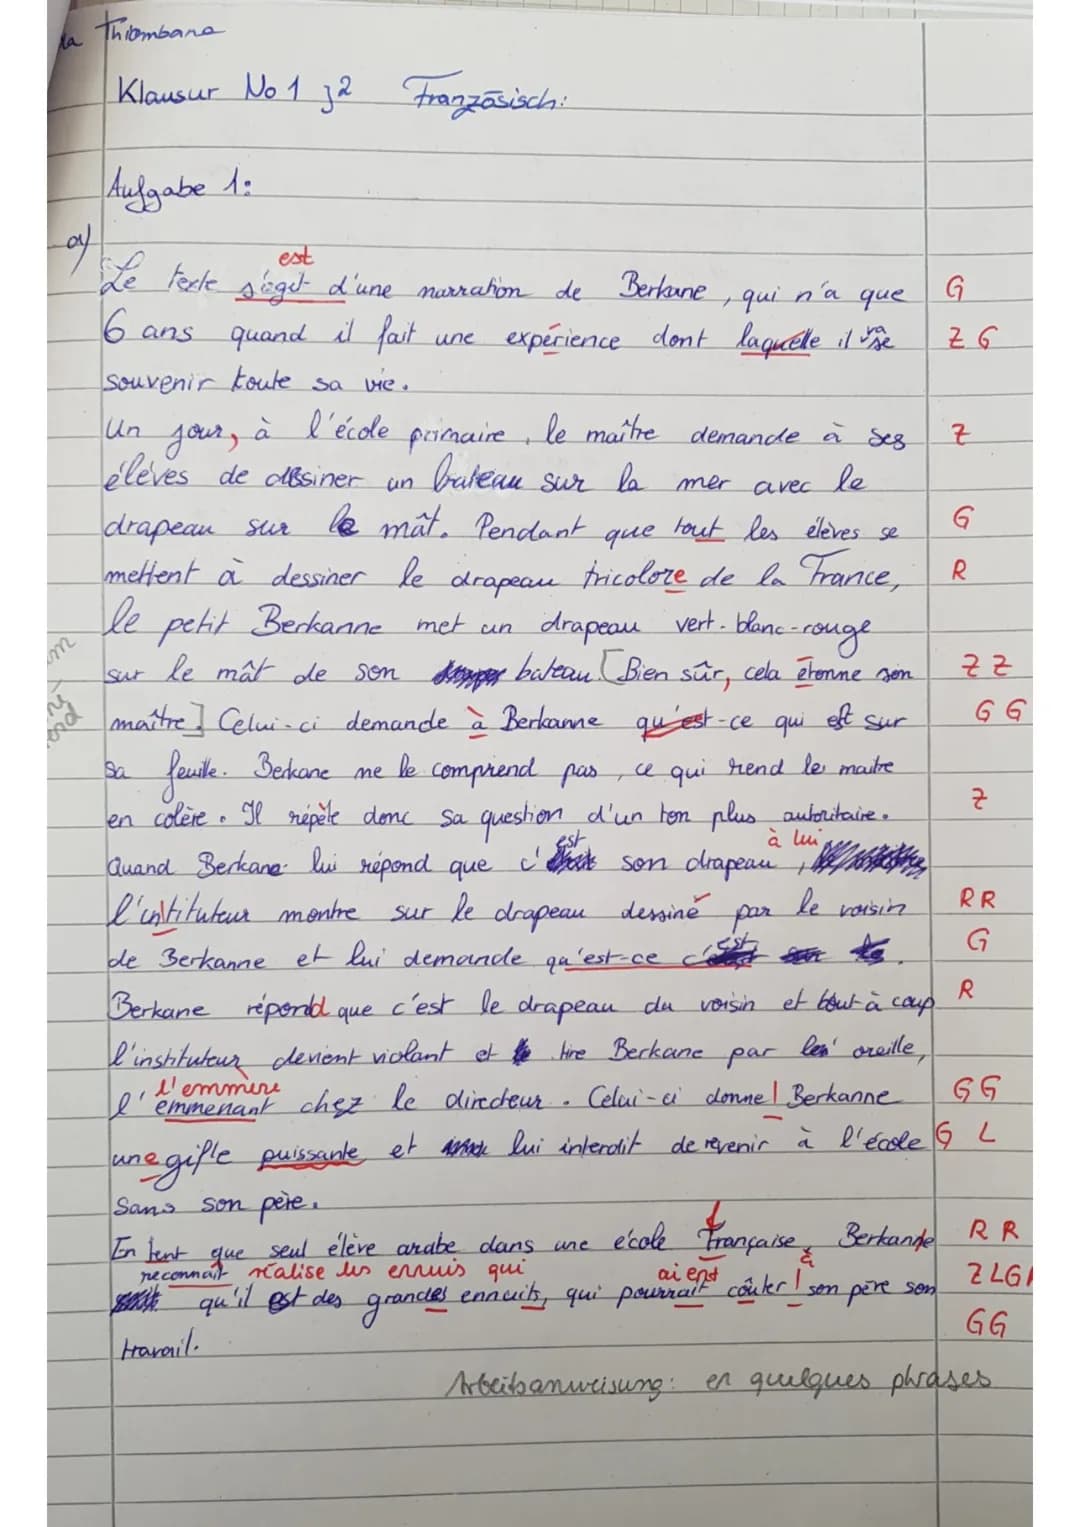 la Thiombane
Klausur No 1 J2 Französisch:
Aufgabe 1:
a)
est
Le texte s'agit d'une narration de Berkane, qui n'a que G
6 ans quand il fait une expérience dont laquelle il va se Z G
souvenir toute sa vie.
Un jour, à l'école primaire, le maître demande à ses Z
élèves de dessiner un bateau sur la mer avec le
drapeau sur le mât. Pendant que tout les élèves se G
mettent à dessiner le drapeau tricolore de la France, R
le petit Berkanne met un drapeau vert-blanc-rouge
sur le mât de son bateau. [Bien sûr, cela étonne son Z Z
maître] Celui-ci demande à Berkanne qu'est-ce qui est sur G G
sa feuille. Berkane ne le comprend pas, ce qui rend le maitre
en colère. Il répète donc sa question d'un ton plus autoritaire. Z
est à lui
Quand Berkane lui répond que c' son drapeau,
l'intituteur montre sur le drapeau dessiné par le voisin R R
de Berkanne et lui demande qu'est-ce c'est . G
Berkane répond que c'est le drapeau du voisin et tout à coup R
l'instituteur devient violant et tire Berkane par les oreille,
l'emmène
l'emmenant chez le directeur. Celui-ci donne Berkanne G G
une gifle puissante et lui interdit de revenir à l'école G L
sans son père.
En tent que seul élève arabe dans une école Française, Berkande R R
reconnaît réalise les ennuis qui aient à Z L G
qu'il est des grandes ennuits, qui pourrait coûter son père son
travail. G G
Arbeitsanweisung: en quelques phrases